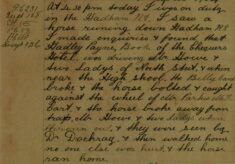 At 4.30 pm today I was on duty
in the Hadham Rd. I saw a
horse running down Hadham Rd
I made enquiries & found that
Hadley Payne, Boots of the Chequers
Hotel, was driving Mr Howe &
two Ladys of North Street & when
near the High School, the Belly band
broke & the horse bolted & caught
against the wheel of Mr
cart, & the horse broke away from
trap, Mr Howe & two Lady's when
thrown out, & they was seen by
Dr Dockray, & then walked home
no one else was hurt, & the horse
ran home.